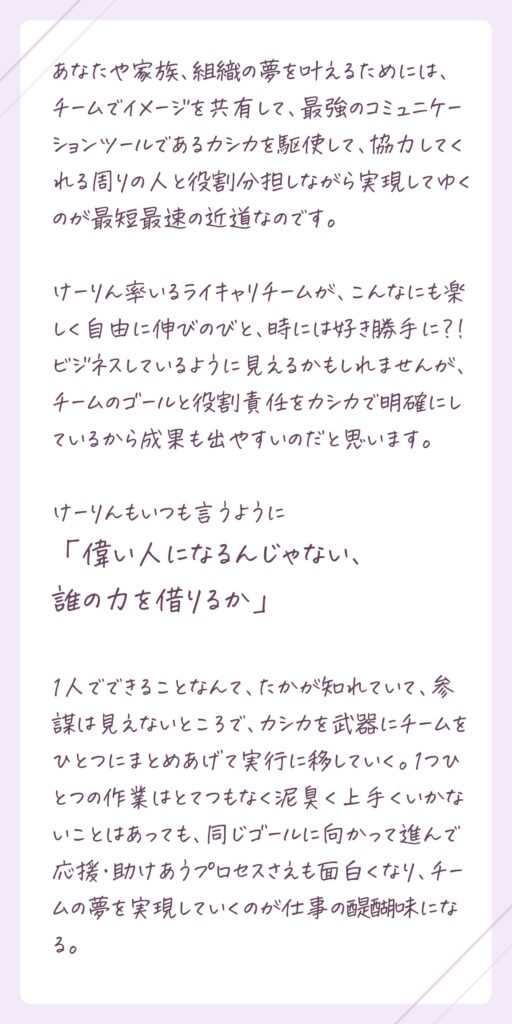 あなたや家族、組織の夢を叶えるためには、
チームでイメージを共有して、最強のコミュニケー
ションツールであるカシカを駆使して、協力してく
れる周りの人と役割分担しながら実現してゆく
のが最短最速の近道なのです。
けーりん率いるライキャリチームが、こんなにも楽
しく自由に伸びのびと、時には好き勝手に?!
ビジネスしているように見えるかもしれませんが、
チームのゴールと役割責任をカシカで明確にし
ているから成果も出やすいのだと思います。
けーりんもいつも言うように
「偉い人になるんじゃない、
誰の力を借りるか」
1人でできることなんて、たかが知れていて、参
謀は見えないところで、カシカを武器にチームを
ひとつにまとめあげて実行に移していく。1つひ
とつの作業はとてつもなく泥臭く上手くいかな
いことはあっても、同じゴールに向かって進んで
応援・助けあうプロセスさえも面白くなり、チー
ムの夢を実現していくのが仕事の醍醐味にな
る。